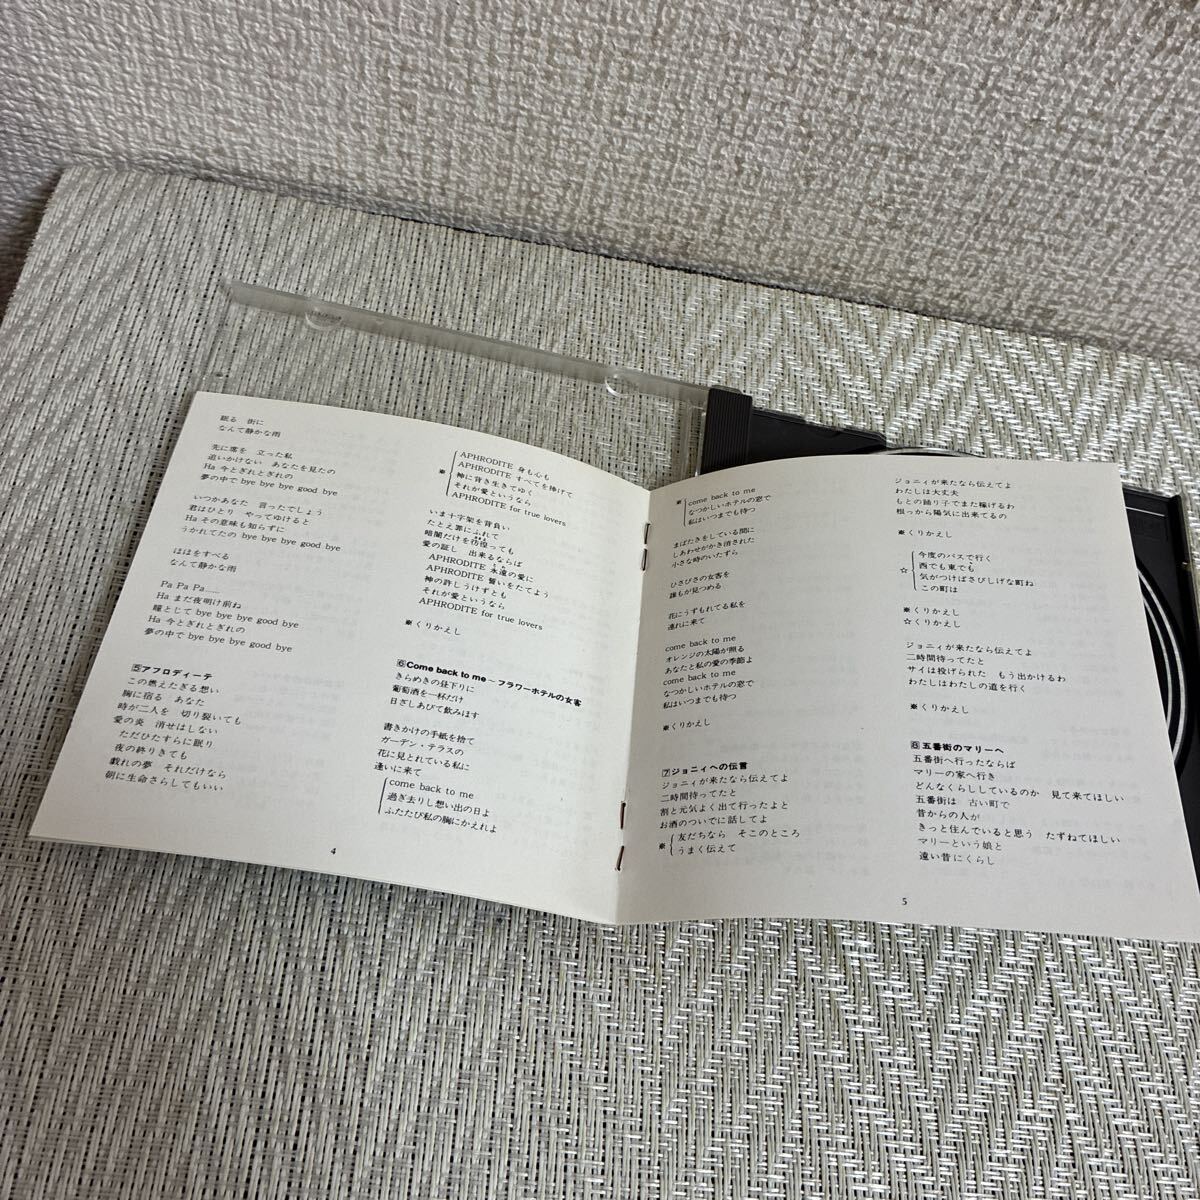 眠る　街に
なんて静かな雨
先に席を　立った私
追いかけない　あなたを見たの
Ha 今とぎれとぎれの
夢の中で bye bye bye good bye
いつかあなた　言ったでしょう
君はひとり　やってゆけると
Ha その意味も知らずに
うかれてたの bye bye bye good bye
ほほをすべる
なんて静かな雨
Pa Pa Pa……
Ha まだ夜明け前ね
瞳とじて bye bye bye good bye
Ha 今とぎれとぎれの
夢の中で bye bye bye good bye
5 アフロディーテ
この燃えたぎる想い
胸に宿る　あなた
時が二人を　切り裂いても
愛の炎　消せはしない
ただひたすらに眠り
夜の終りきても
戯れの夢　それだけなら
朝に生命さらしてもいい
※
APHRODITE 身も心も
APHRODITE すべてを捧げて
神に背き生きてゆく
それが愛というなら
APHRODITE for true lovers
いま十字架を背負い
たとえ罪にふれて
暗闇だけを彷徨っても
愛の証し　出来るならば
APHRODITE 永遠の愛に
APHRODITE 誓いをたてよう
神の許しうけずとも
それが愛というなら
APHRODITE for true lovers
※くりかえし
6 Come back to me ～ フラワーホテルの女客
きらめきの昼下りに
葡萄酒を一杯だけ
日ざしあびて飲みほす
書きかけの手紙を捨て
ガーデン・テラスの
花に見とれている私に
逢いに来て
come back to me
過ぎ去りし想い出の日よ
ふたたび私の胸にかえれよ
4
※
come back to me
なつかしいホテルの窓で
私はいつまでも待つ
まばたきをしている間に
しあわせがかき消された
小さな時のいたずら
ひさびさの女客を
誰もが見つめる
花にうずもれてる私を
連れに来て
come back to me
オレンジの太陽が照る
あなたと私の愛の季節よ
come back to me
なつかしいホテルの窓で
私はいつまでも待つ
※くりかえし
7 ジョニィへの伝言
ジョニィが来たなら伝えてよ
二時間待ってたと
割と元気よく出て行ったよと
お酒のついでに話してよ
※
友だちなら　そこのところ
うまく伝えて
ジョニィが来たなら伝えてよ
わたしは大丈夫
もとの踊り子でまた稼げるわ
根っから陽気に出来てるの
※くりかえし
☆
今度のバスで行く
西でも東でも
気がつけばさびしげな町ね
この町は
※くりかえし
☆くりかえし
ジョニィが来たなら伝えてよ
二時間待ってたと
サイは投げられた　もう出かけるわ
わたしはわたしの道を行く
※くりかえし
8 五番街のマリーへ
五番街へ行ったならば
マリーの家へ行き
どんなくらししているのか　見て来てほしい
五番街は　古い町で
昔からの人が
きっと住んでいると思う　たずねてほしい
マリーという娘と
遠い昔にくらし
5